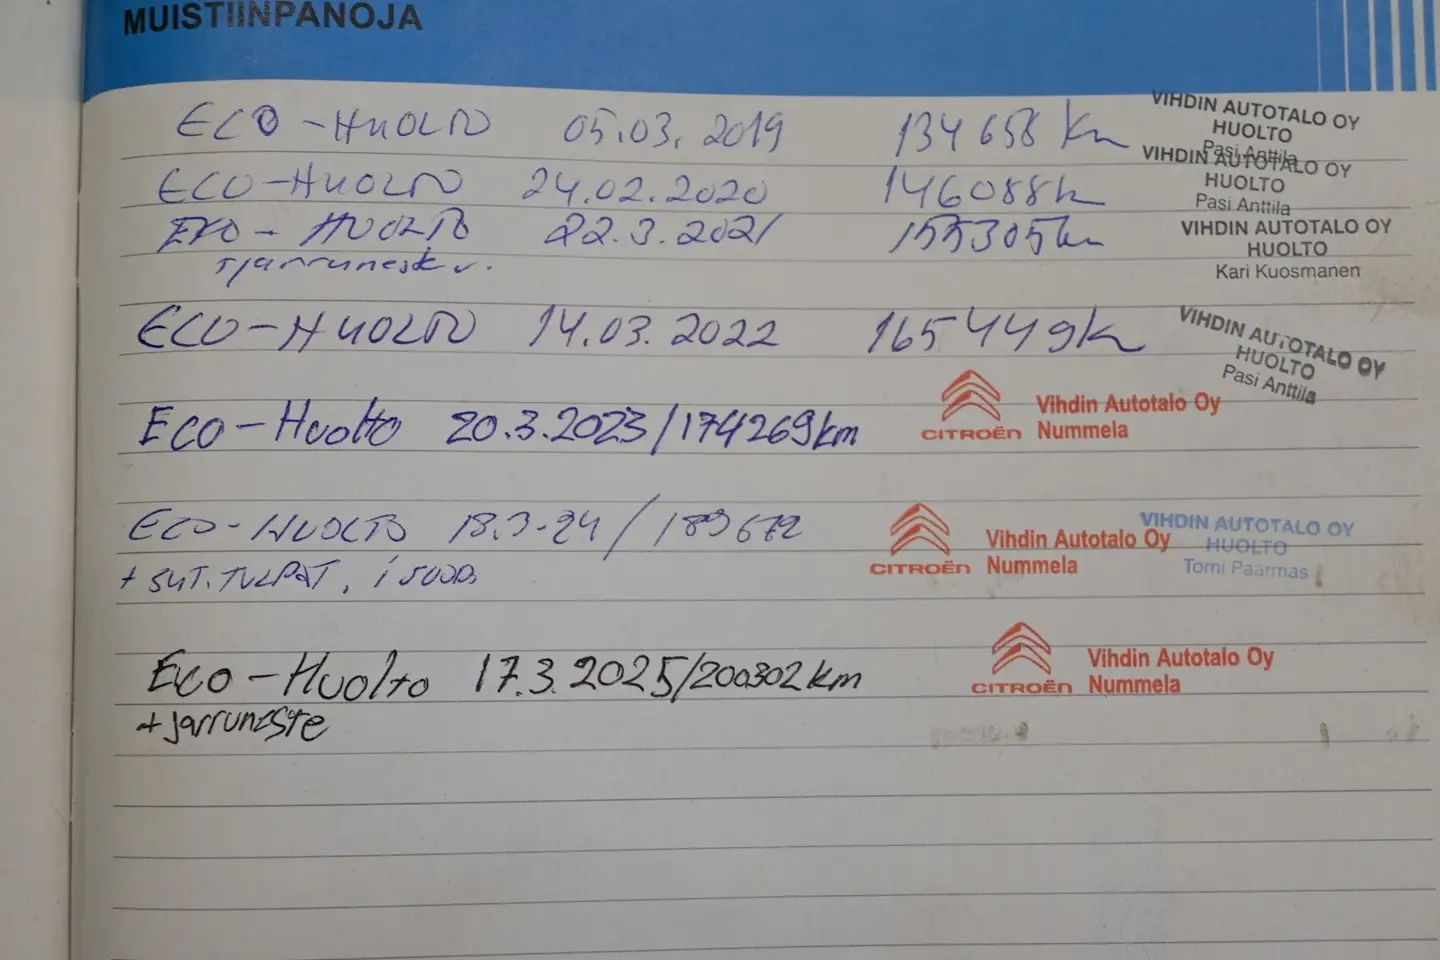 MUISTIINPANOJA
ECO-HUOLTO 05.03.2019 134 658 km VIHDIN AUTOTALO OY
HUOLTO
Pasi Anttila
ECO-HUOLTO 24.02.2020 146088k VIHDIN AUTOTALO OY
HUOLTO
Pasi Anttila
EKO-HUOLTO 22.3.2021 155305km VIHDIN AUTOTALO OY
HUOLTO
Kari Kuosmanen
ECO-HUOLTO 14.03.2022 165449k VIHDIN AUTOTALO OY
HUOLTO
Pasi Anttila
Eco-Huolto 20.3.2023/174269km CITROËN Vihdin Autotalo Oy
Nummela
ECO-HUOLTO 18.3-24/189672 CITROËN Vihdin Autotalo Oy
Nummela
VIHDIN AUTOTALO OY
HUOLTO
Tomi Paarmas
+ SYT.TULPAT,
Eco-Huolto 17.3.2025/200302km CITROËN Vihdin Autotalo Oy
Nummela
+jarruneste